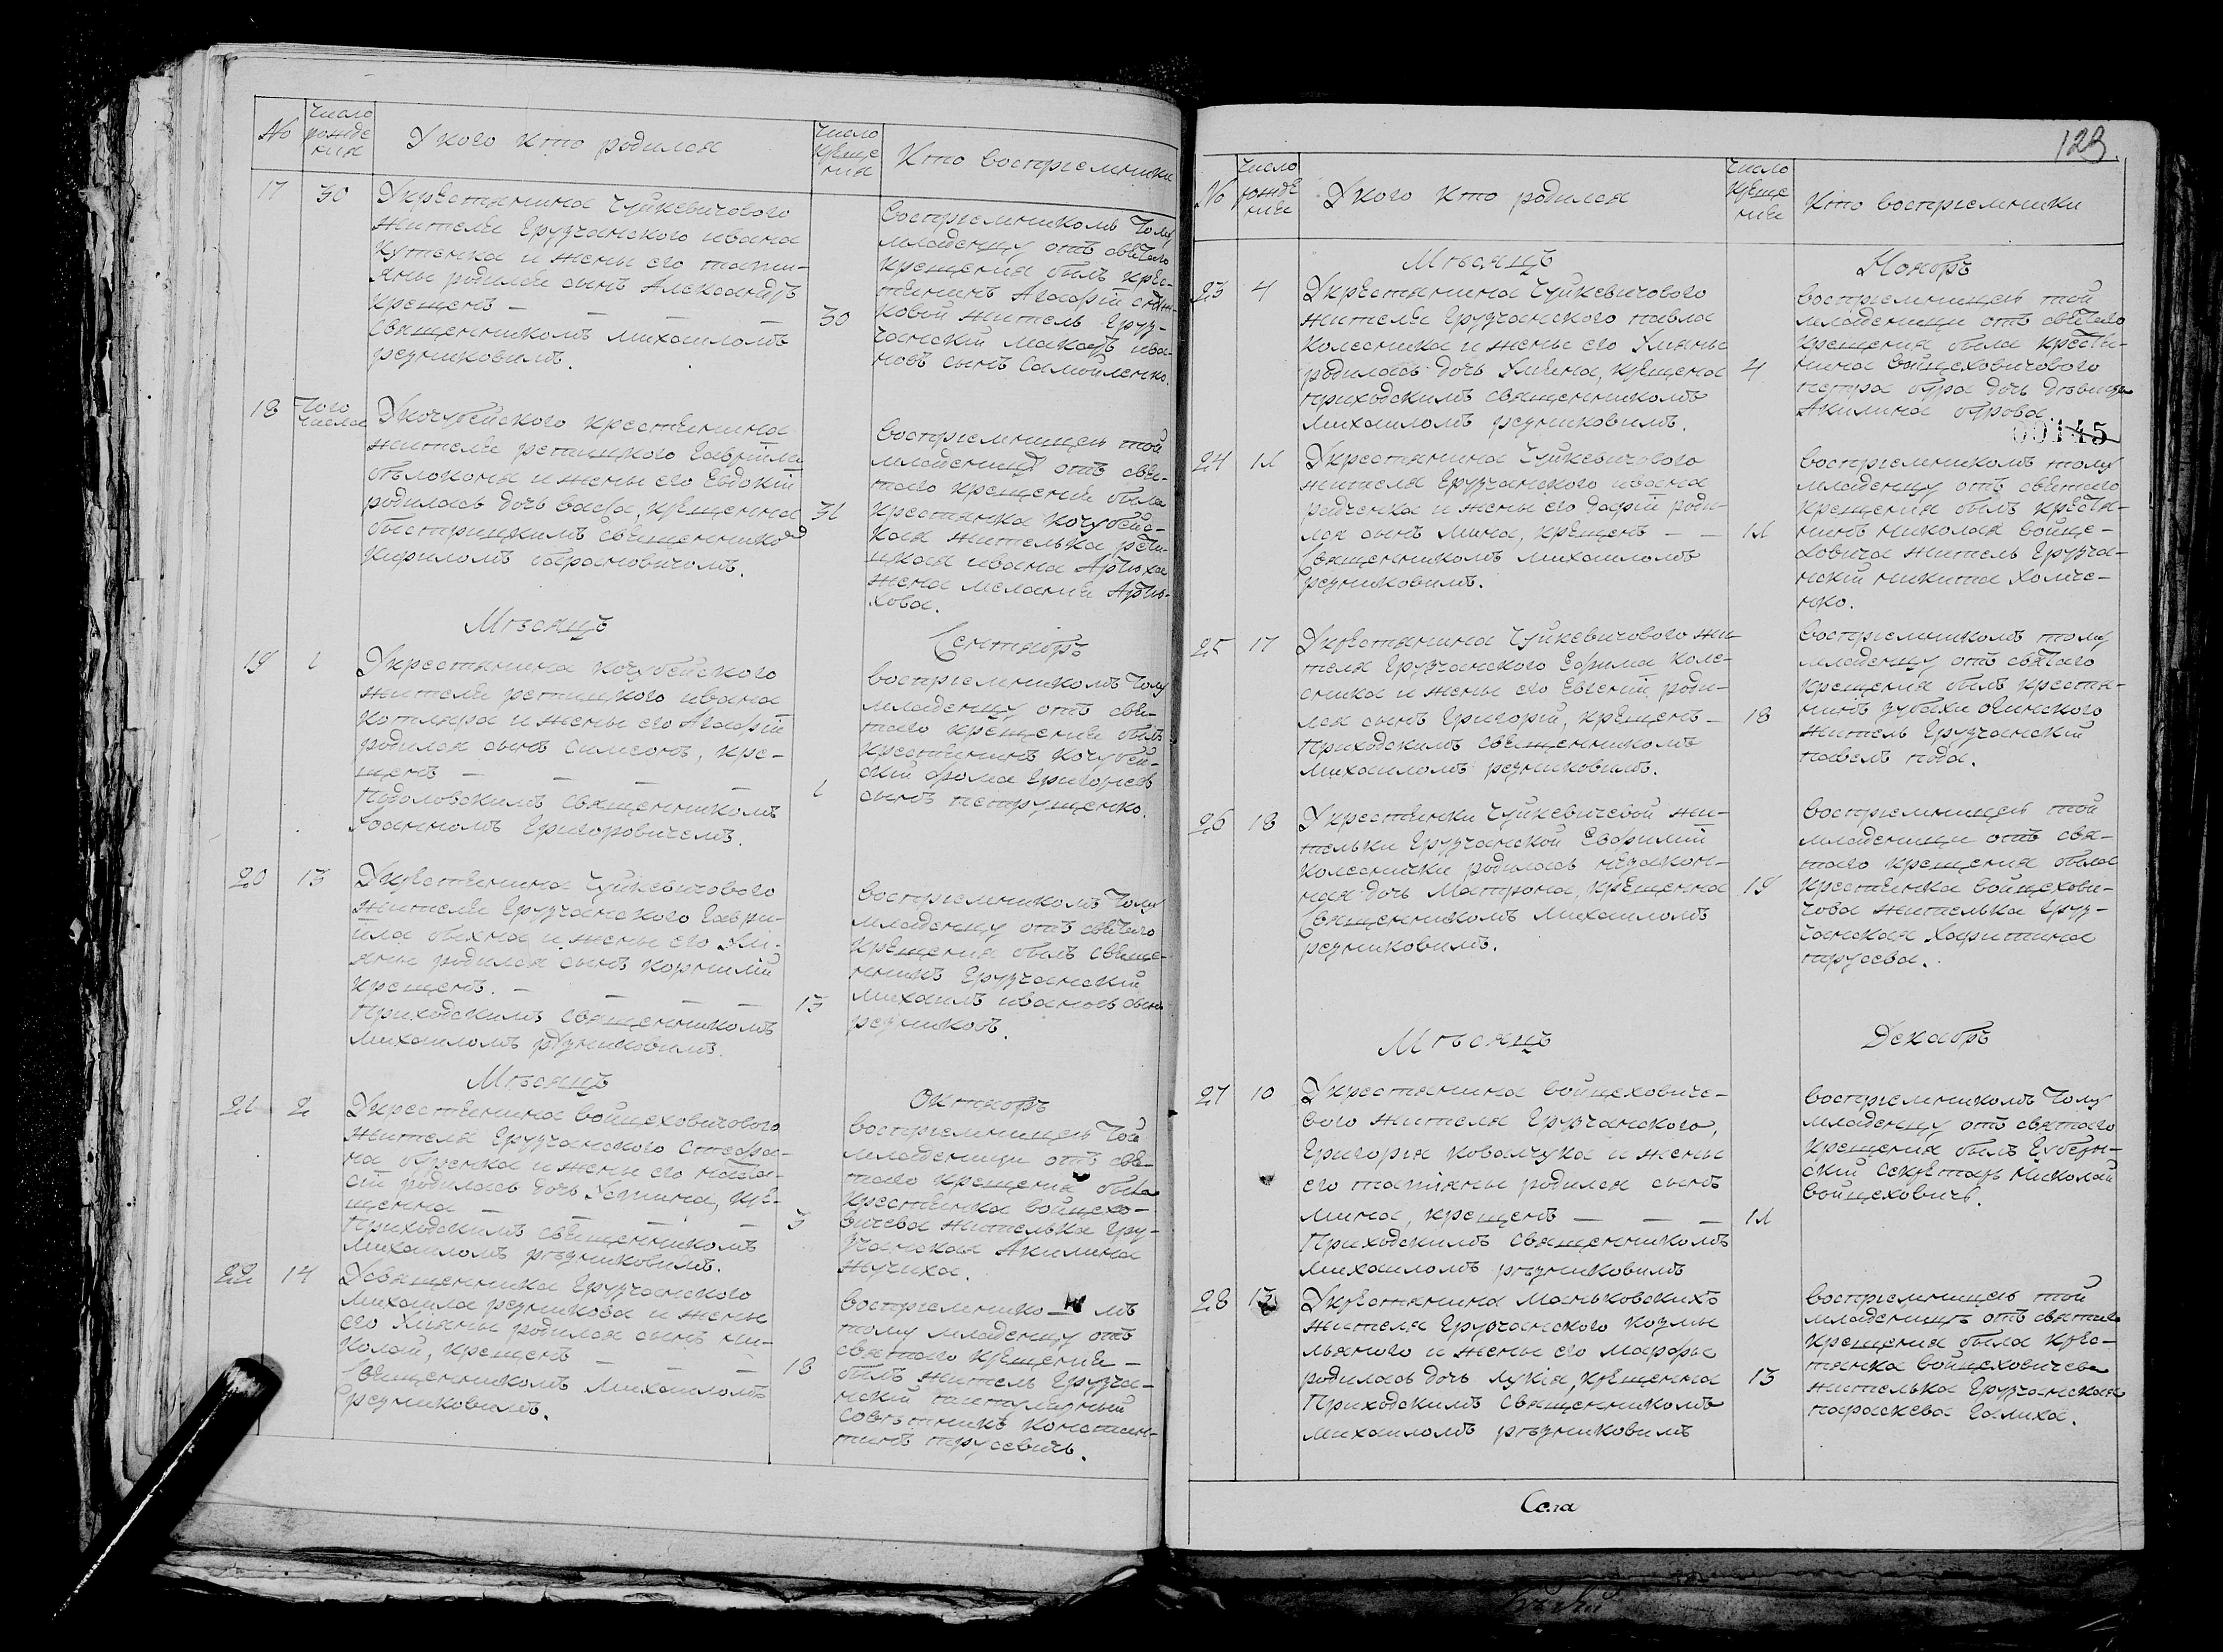 №
Число рожде ния
У кого кто родился
Число креще ния
Кто восприемники
17
30
У крестянина Чуйкевичового
жителя Грузчанского ивана
кутенка и жены его тати-
яны родился сынъ Александръ
крещенъ — — — —
Священникомъ михаиломъ
резниковимъ.
30
Восприемникомъ тому
младенцу отъ святаго
крещения былъ крес-
тянинъ
ковой житель Груз-
чанский макаръ ива-
новъ сынъ Самойленко.
18
Того числа
У кочубейского крестянина
жителя репищкого Гавриила
белоконя и жены его Евдокии
родилась дочь васса, крещенна
быстрицкимъ священником
кириломъ
31
Восприемницею той
младеницы отъ свя-
таго крещения была
крестянка кочубейс-
кая жителька репи-
цкая ивана Арюха
жена мелания Арю-
хова.
Мѣсяцъ
Сентябръ
19
1
У крестянина кочубейского
жителя репищкого ивана
котляра и жены его Агафии
родился сынъ Симеонъ, кре-
щенъ — — — —
Подоловскимъ священникомъ
Іоанномъ Григоровичемъ.
1
Восприемникомъ тому
младенцу отъ свя-
таго крещения былъ
крестянинъ кочубей-
ский фома Григориевъ
сынъ петрущенко.
20
13
У крестянина Чуйкевичового
жителя Грузчанского Гаври-
ила быхна и жены его Ули-
яны родился сынъ корнилий
крещенъ. — — — —
Приходскимъ священникомъ
михаиломъ рѣзниковимъ.
13
Восприемникомъ тому
младенцу отъ святаго
крещения былъ свяще-
нникъ Грузчанский
михаилъ ивановъ сынъ
резниковъ.
Мѣсяцъ
Октябръ
21
2
У крестянина войцеховичового
жителя Грузчанского Стефа-
на
родилась дочь Устина, кре-
щенна — — — —
Приходскимъ священникомъ
михаиломъ рѣзниковимъ.
3
Восприемницею той
младеницы отъ свя-
таго крещения была
крестянка войцехо-
вичева жителька Гру-
зчанская Акилина
жучиха.
22
14
У священника Грузчанского
михаила резникова и жены
его Улияны родился сынъ ни-
колай, крещенъ — — —
Священникомъ михаиломъ
резниковимъ.
18
Восприемнико — мъ
тому младенцу отъ
святаго крещения —
былъ житель Грузча-
нский титулярный
советникъ констан-
тинъ трусевичъ.
123
№
Число рожде ния
У кого кто родился
Число креще ния
Кто восприемники
Мѣсяцъ
Ноябръ
23
4
У крестянина Чуйкевичового
жителя Грузчанского павла
колесника и жены его Улияны
родилась дочь Улияна, крещена
приходскимъ священникомъ
михаиломъ резниковимъ.
4
восприемницею той
младеницы отъ святаго
крещения была крестя-
нина войцеховичового
петра бура дочь дѣвица
Акилина бурова.
00145
24
11
У крестянина Чуйкевичового
жителя Грузчанского ивана
радченка и жены его дарии роди-
лся сынъ мина, крещенъ — —
Священникомъ михаиломъ
резниковимъ.
11
восприемникомъ тому
младенцу отъ святаго
крещения былъ крестя-
нинъ николая войце-
ховича житель Грузча-
нский никита хомче-
нко.
25
17
У крестянина Чуйкевичового жи-
теля Грузчанского Ефима коле-
сника и жены его Евгении роди-
лся сынъ Григорий, крещенъ —
Приходскимъ священникомъ
михаиломъ резниковимъ.
18
восприемникомъ тому
младенцу отъ святаго
крещения былъ крестя-
нинъ
житель Грузчанский
павелъ
26
18
У крестянки Чуйкевичевой жи-
тельки Грузчанской Евфимии
колеснички родилась незакон-
ная дочь матрона, крещенна
Священникомъ михаиломъ
резниковимъ.
19
восприемницею той
младеницы отъ свя-
таго крещения была
крестянка войцехови-
чова жителька Груз-
чанская харитина
трусева.
Мѣсяцъ
Декабръ
27
10
У крестянина войцеховиче-
вого жителя Грузчанского,
Григория ковалчука и жены
его татияны родился сынъ
мина, крещенъ — — —
Приходскимъ священникомъ
михаиломъ рѣзниковимъ
11
восприемникомъ тому
младенцу отъ святаго
крещения былъ Губерн-
ский секретарь николай
войцеховичъ.
28
13
У крестянина маньковскихъ
жителя Грузчанского козмы
льяного и жены его марфы
родилась дочь лукия, крещенна
Приходскимъ священникомъ
михаиломъ рѣзниковимъ
13
восприемницею той
младеницѣ отъ святаго
крещения была крес-
тянка войцеховичева
жителька Грузчанская
параскева галиха.
Села